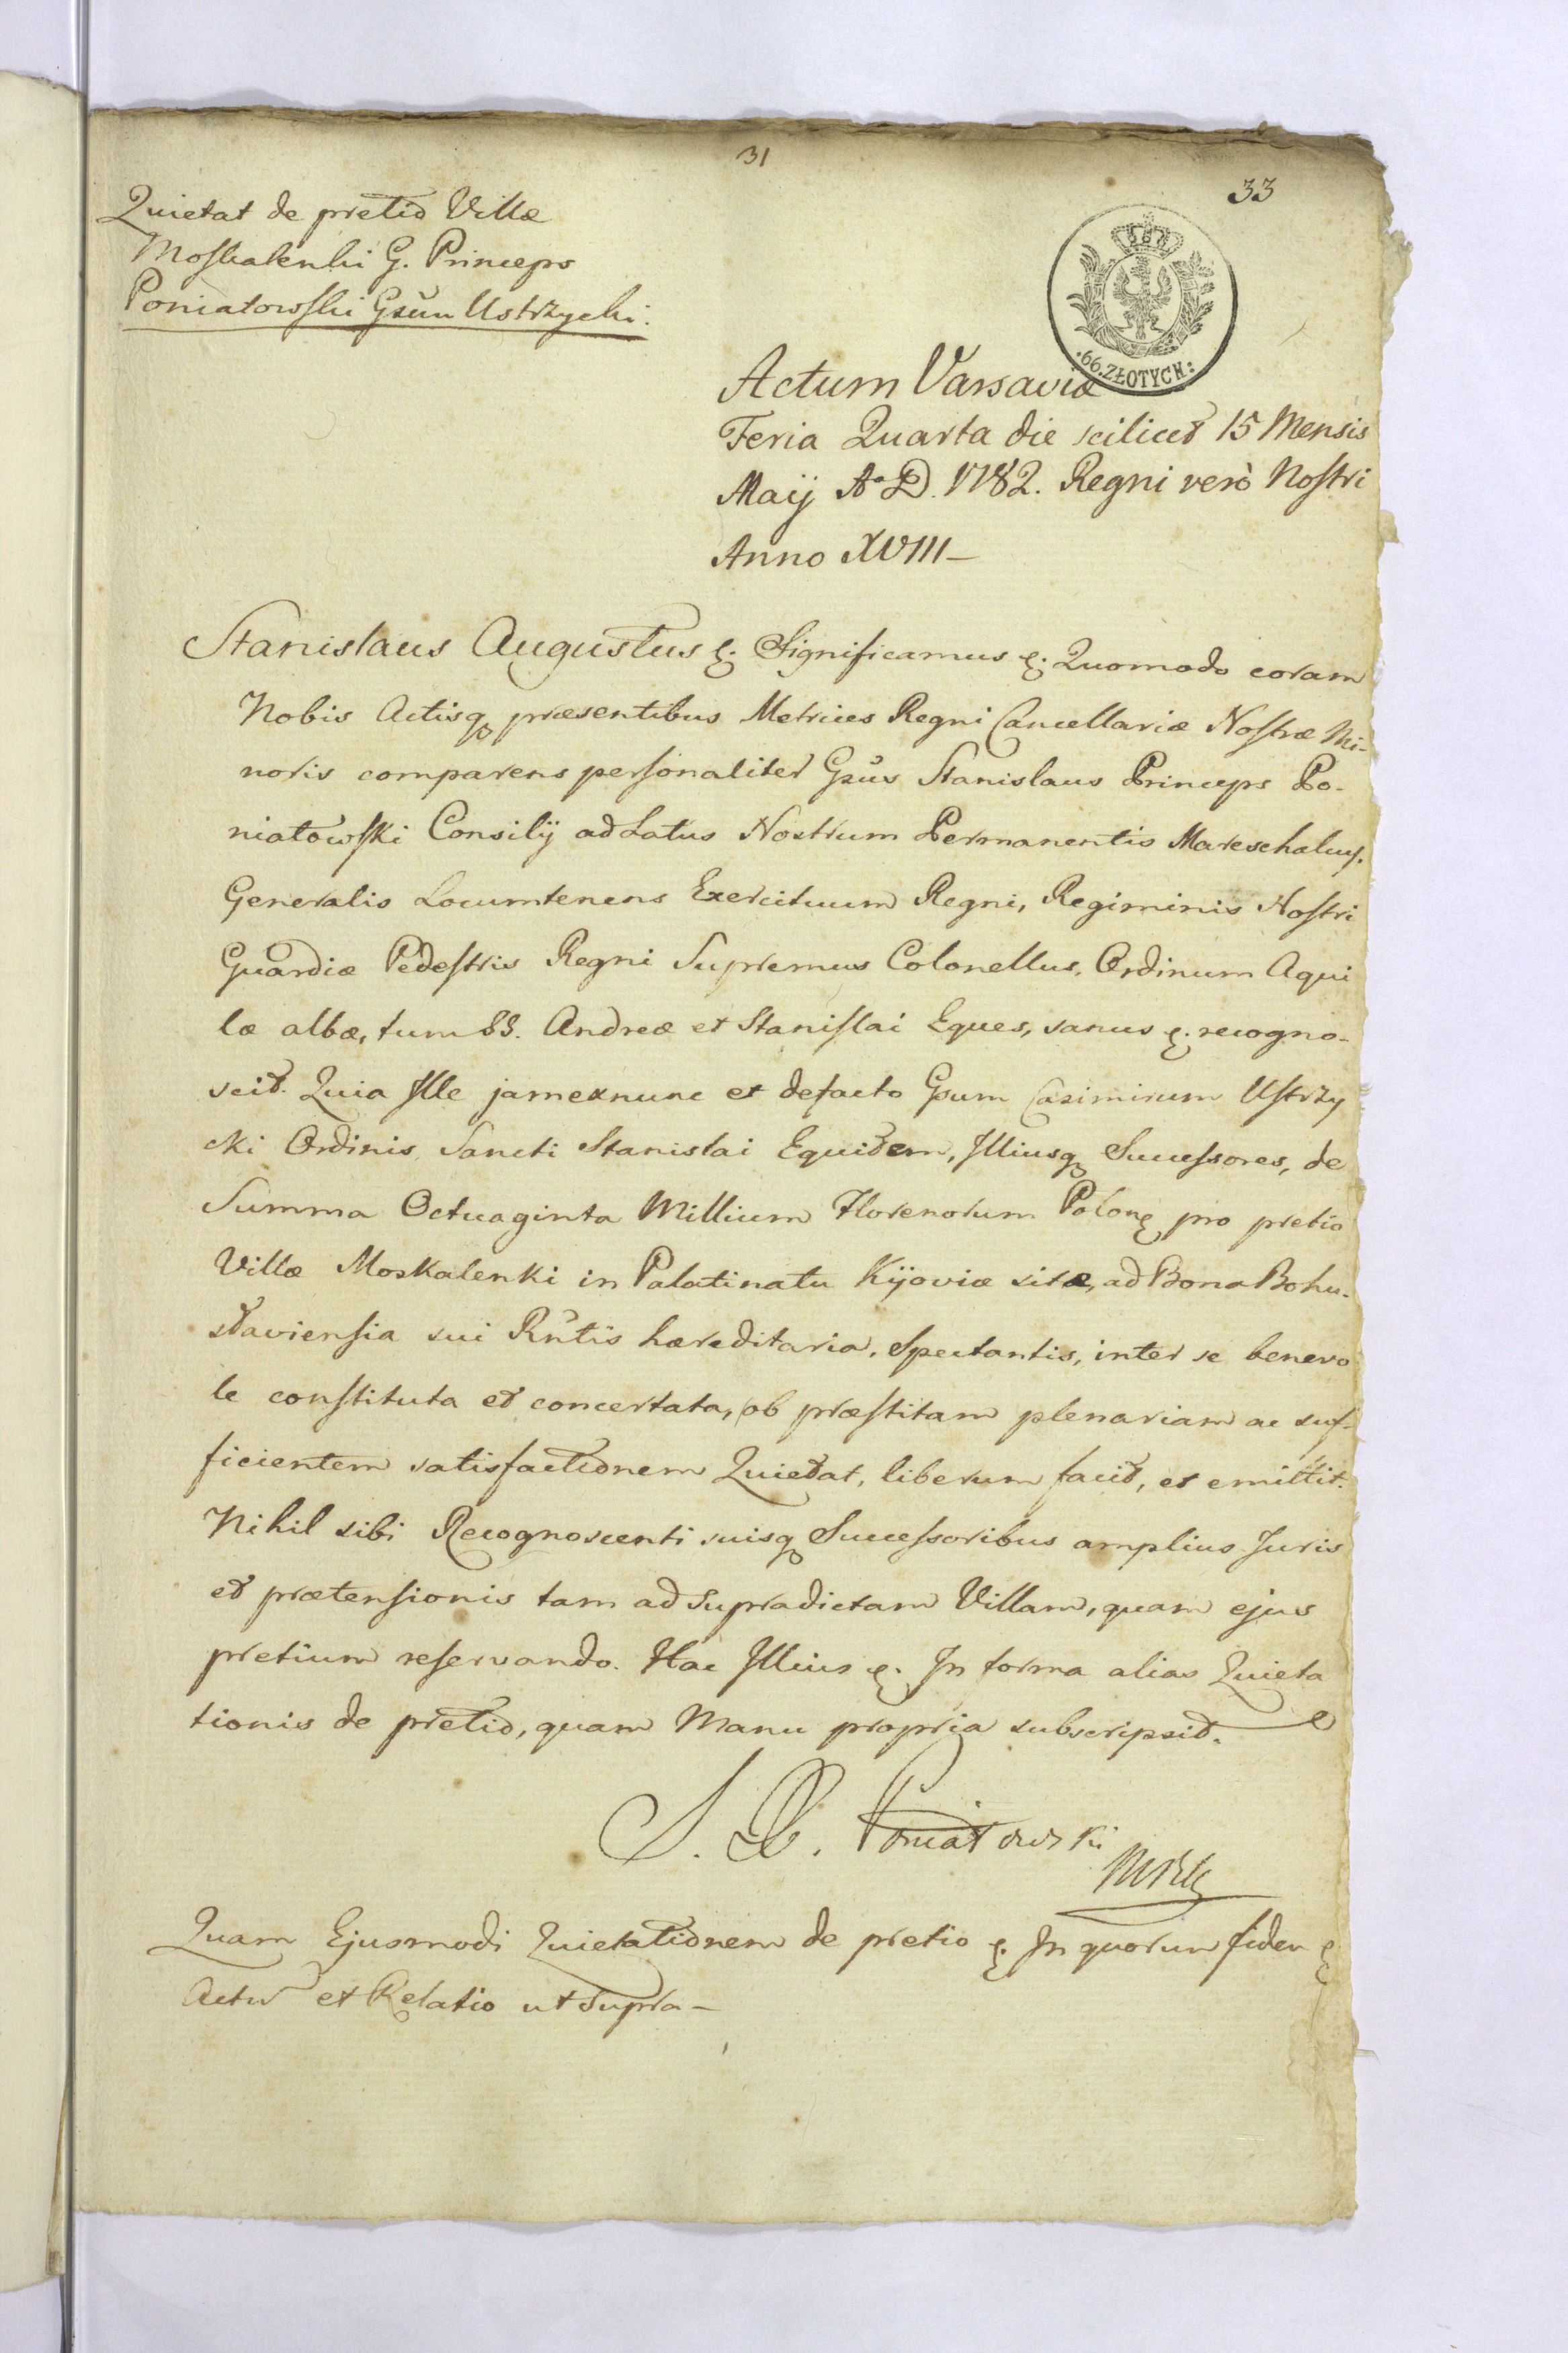 31
33
Quietat de pretio Villæ
Moskalenki G. Princeps
Poniatowski Gsũm Ustrzycki.
.66. ZŁOTYCH:
Actum Varsaviæ
Feria Quarta die scilicet 15 Mensis
Maij A° D. 1782. Regni verò Nostri
Anno XVIII –
Stanislaus Augustus &. Significamus &. Quomodo coram
Nobis Actisq præsentibus Metrices Regni Cancellariæ Nostræ Mi-
noris comparens personaliter Gsũs Stanislaus Princeps Po-
niatowski Consilij ad Latus Nostrum Permanentis Mareschalus,
Generalis Locumtenens Exercituum Regni, Regiminis Nostri
Guardiæ Pedestris Regni Supremus Colonellus, Ordinum Aqui
læ albæ, tum SS. Andreæ et Stanislai Eques, sanus &. recogno-
scit. Quia Ille jam exnunc et defacto Gsum Casimirum Ustrzy
cki Ordinis Sancti Stanislai Equitem, Illiusq Successores, de
Summa Octuaginta Millium Florenorum Polon& pro pretio
Villæ Moskalenki in Palatinatu Kijoviæ sitæ, ad Bona Bohu-
slaviensia sui Rñtis hæreditaria, spectantis, inter se benevo
le constituta et concertata, ob præstitam plenariam ac suf-
ficientem satisfactionem Quietat, liberum facit, et emittit.
Nihil sibi Recognoscenti suisq Successoribus amplius Juris
et prætensionis tam ad supradictam Villam, quam ejus
pretium reservando. Hac Illius &. In forma alias Quieta
tionis de pretio, quam Manu propria subscripsit.
S. P. Poniatowski
Quam Ejusmodi Quietationem de pretio &. In quorum fidem &
Actũ et Relatio ut supra –